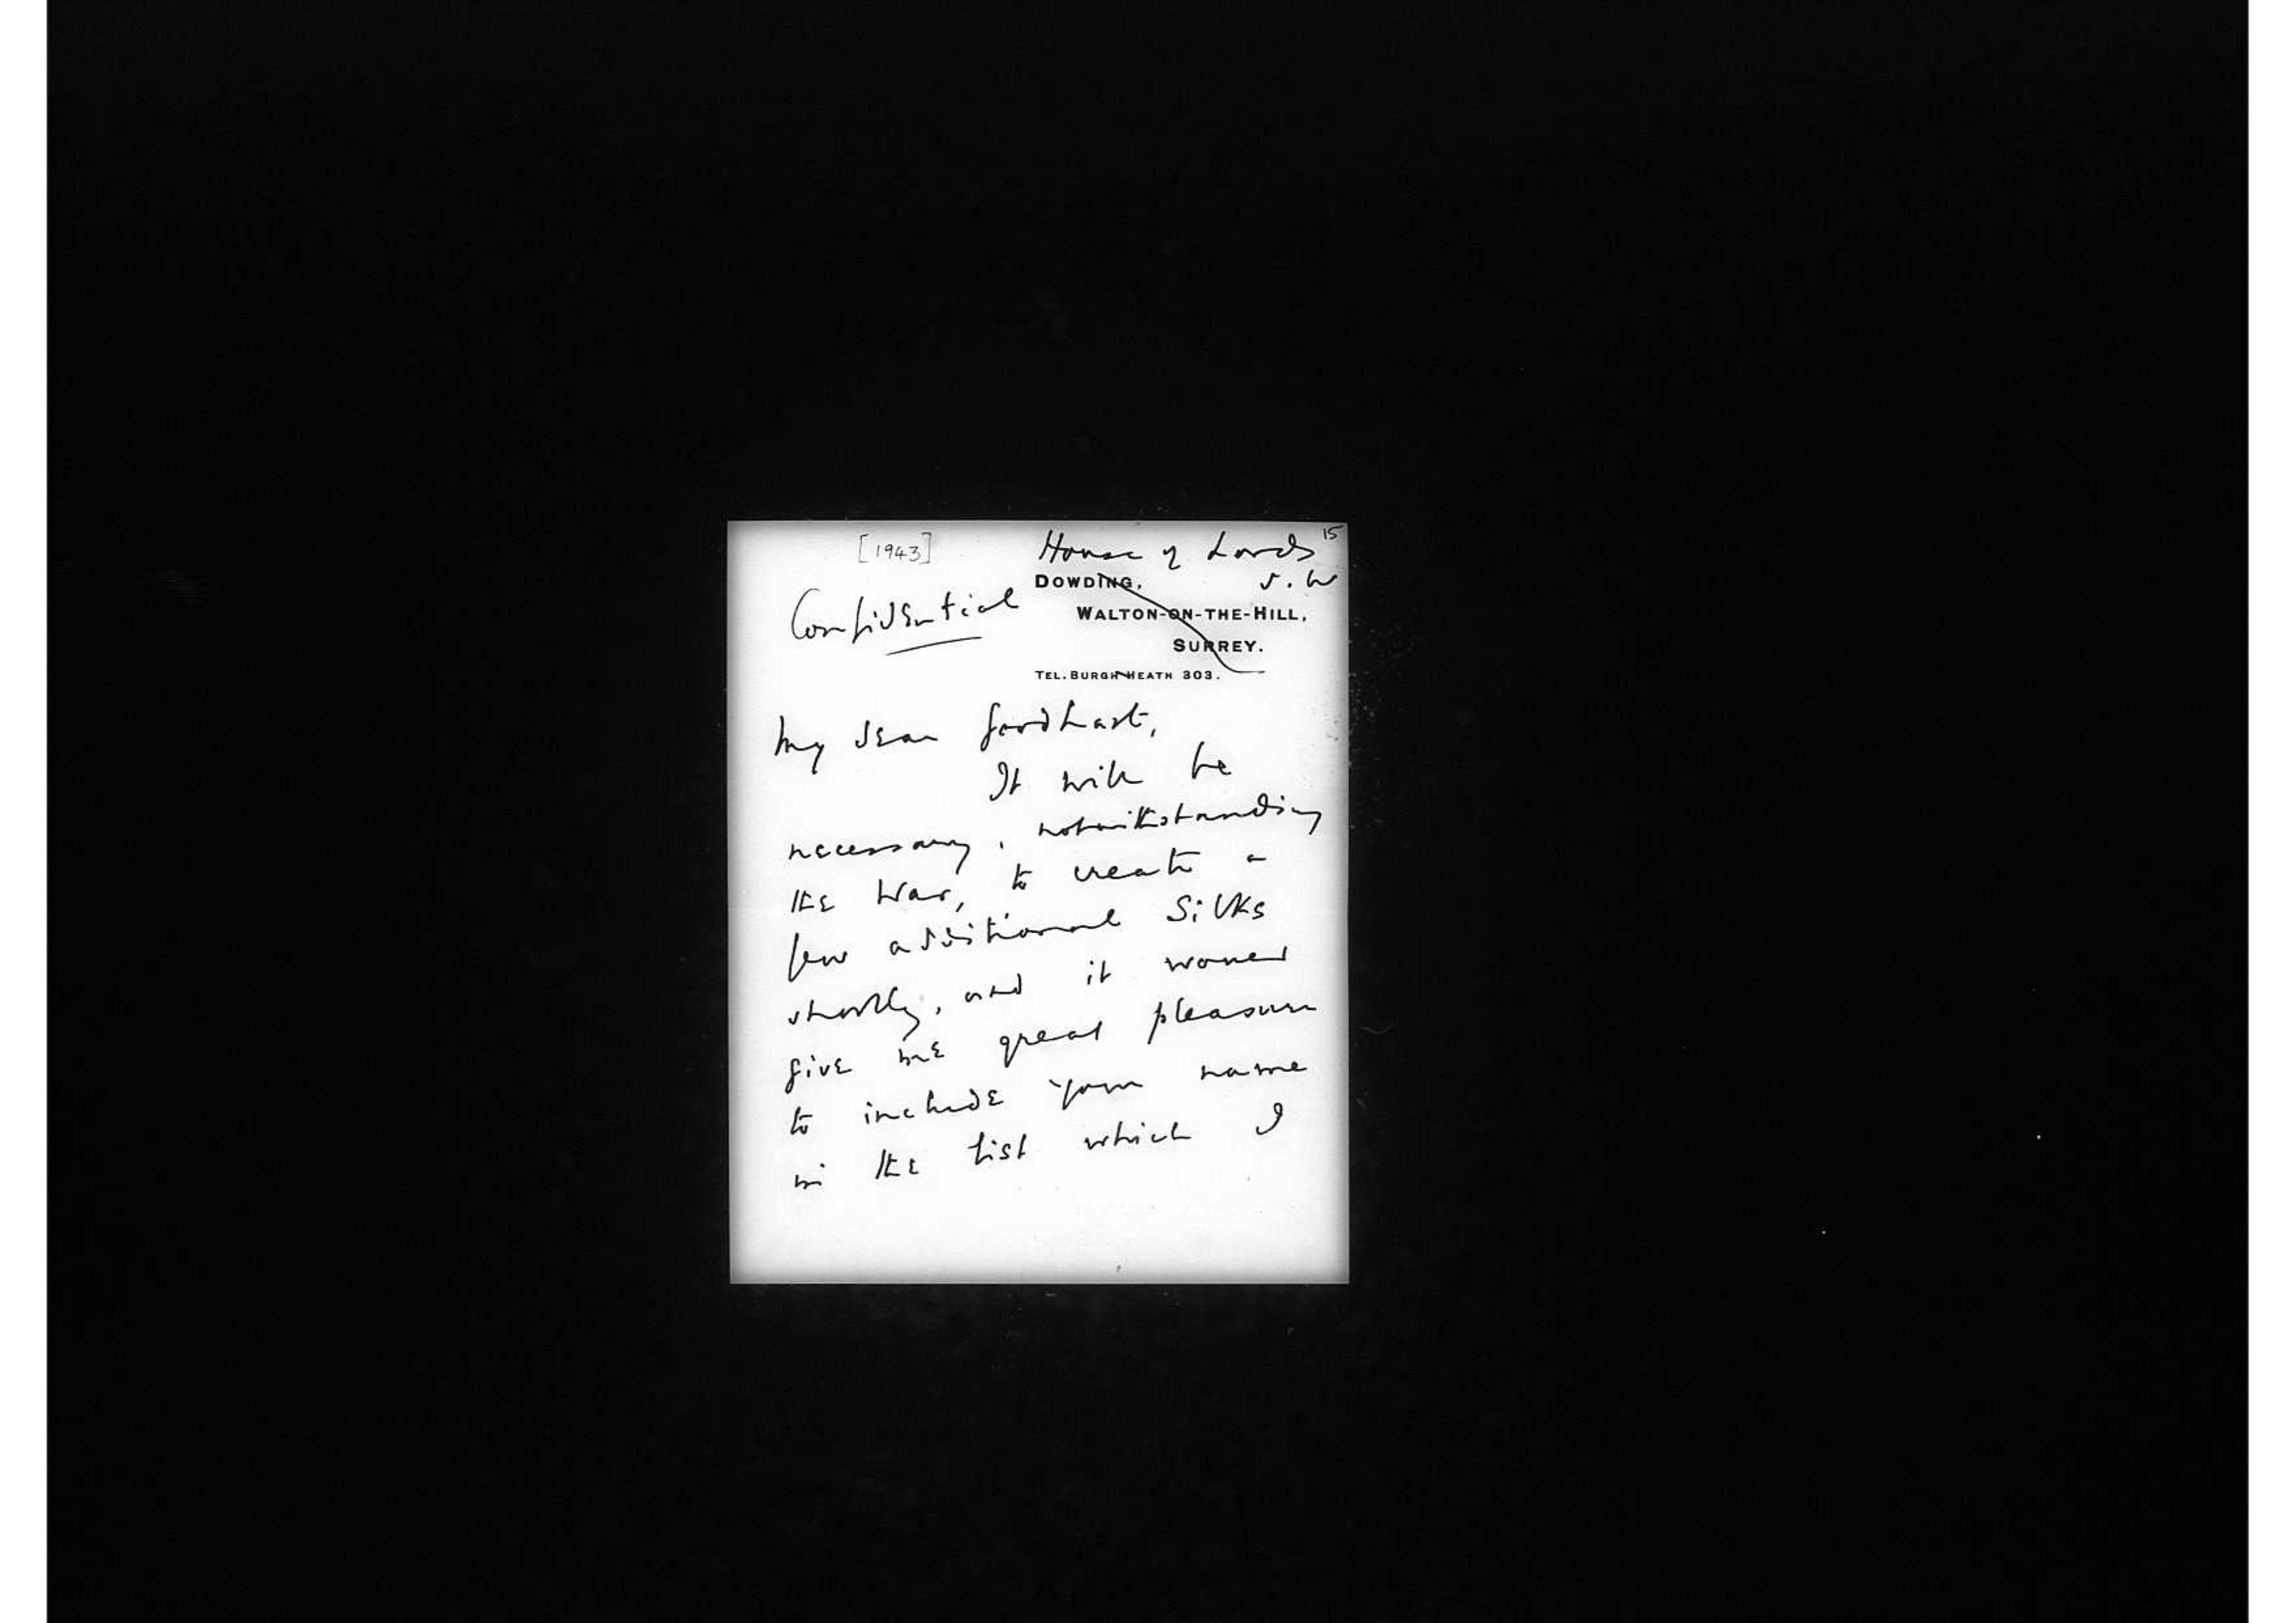 15
[1943]
House of Lords
S.W
Confidential
DOWDING,
WALTON-ON-THE-HILL,
SURREY.
TEL. BURGH HEATH 303.
My dear Goodhart,
It will be
necessary, notwithstanding
the War, to create a
few additional Silks
shortly, and it would
give me great pleasure
to include your name
in the list which I